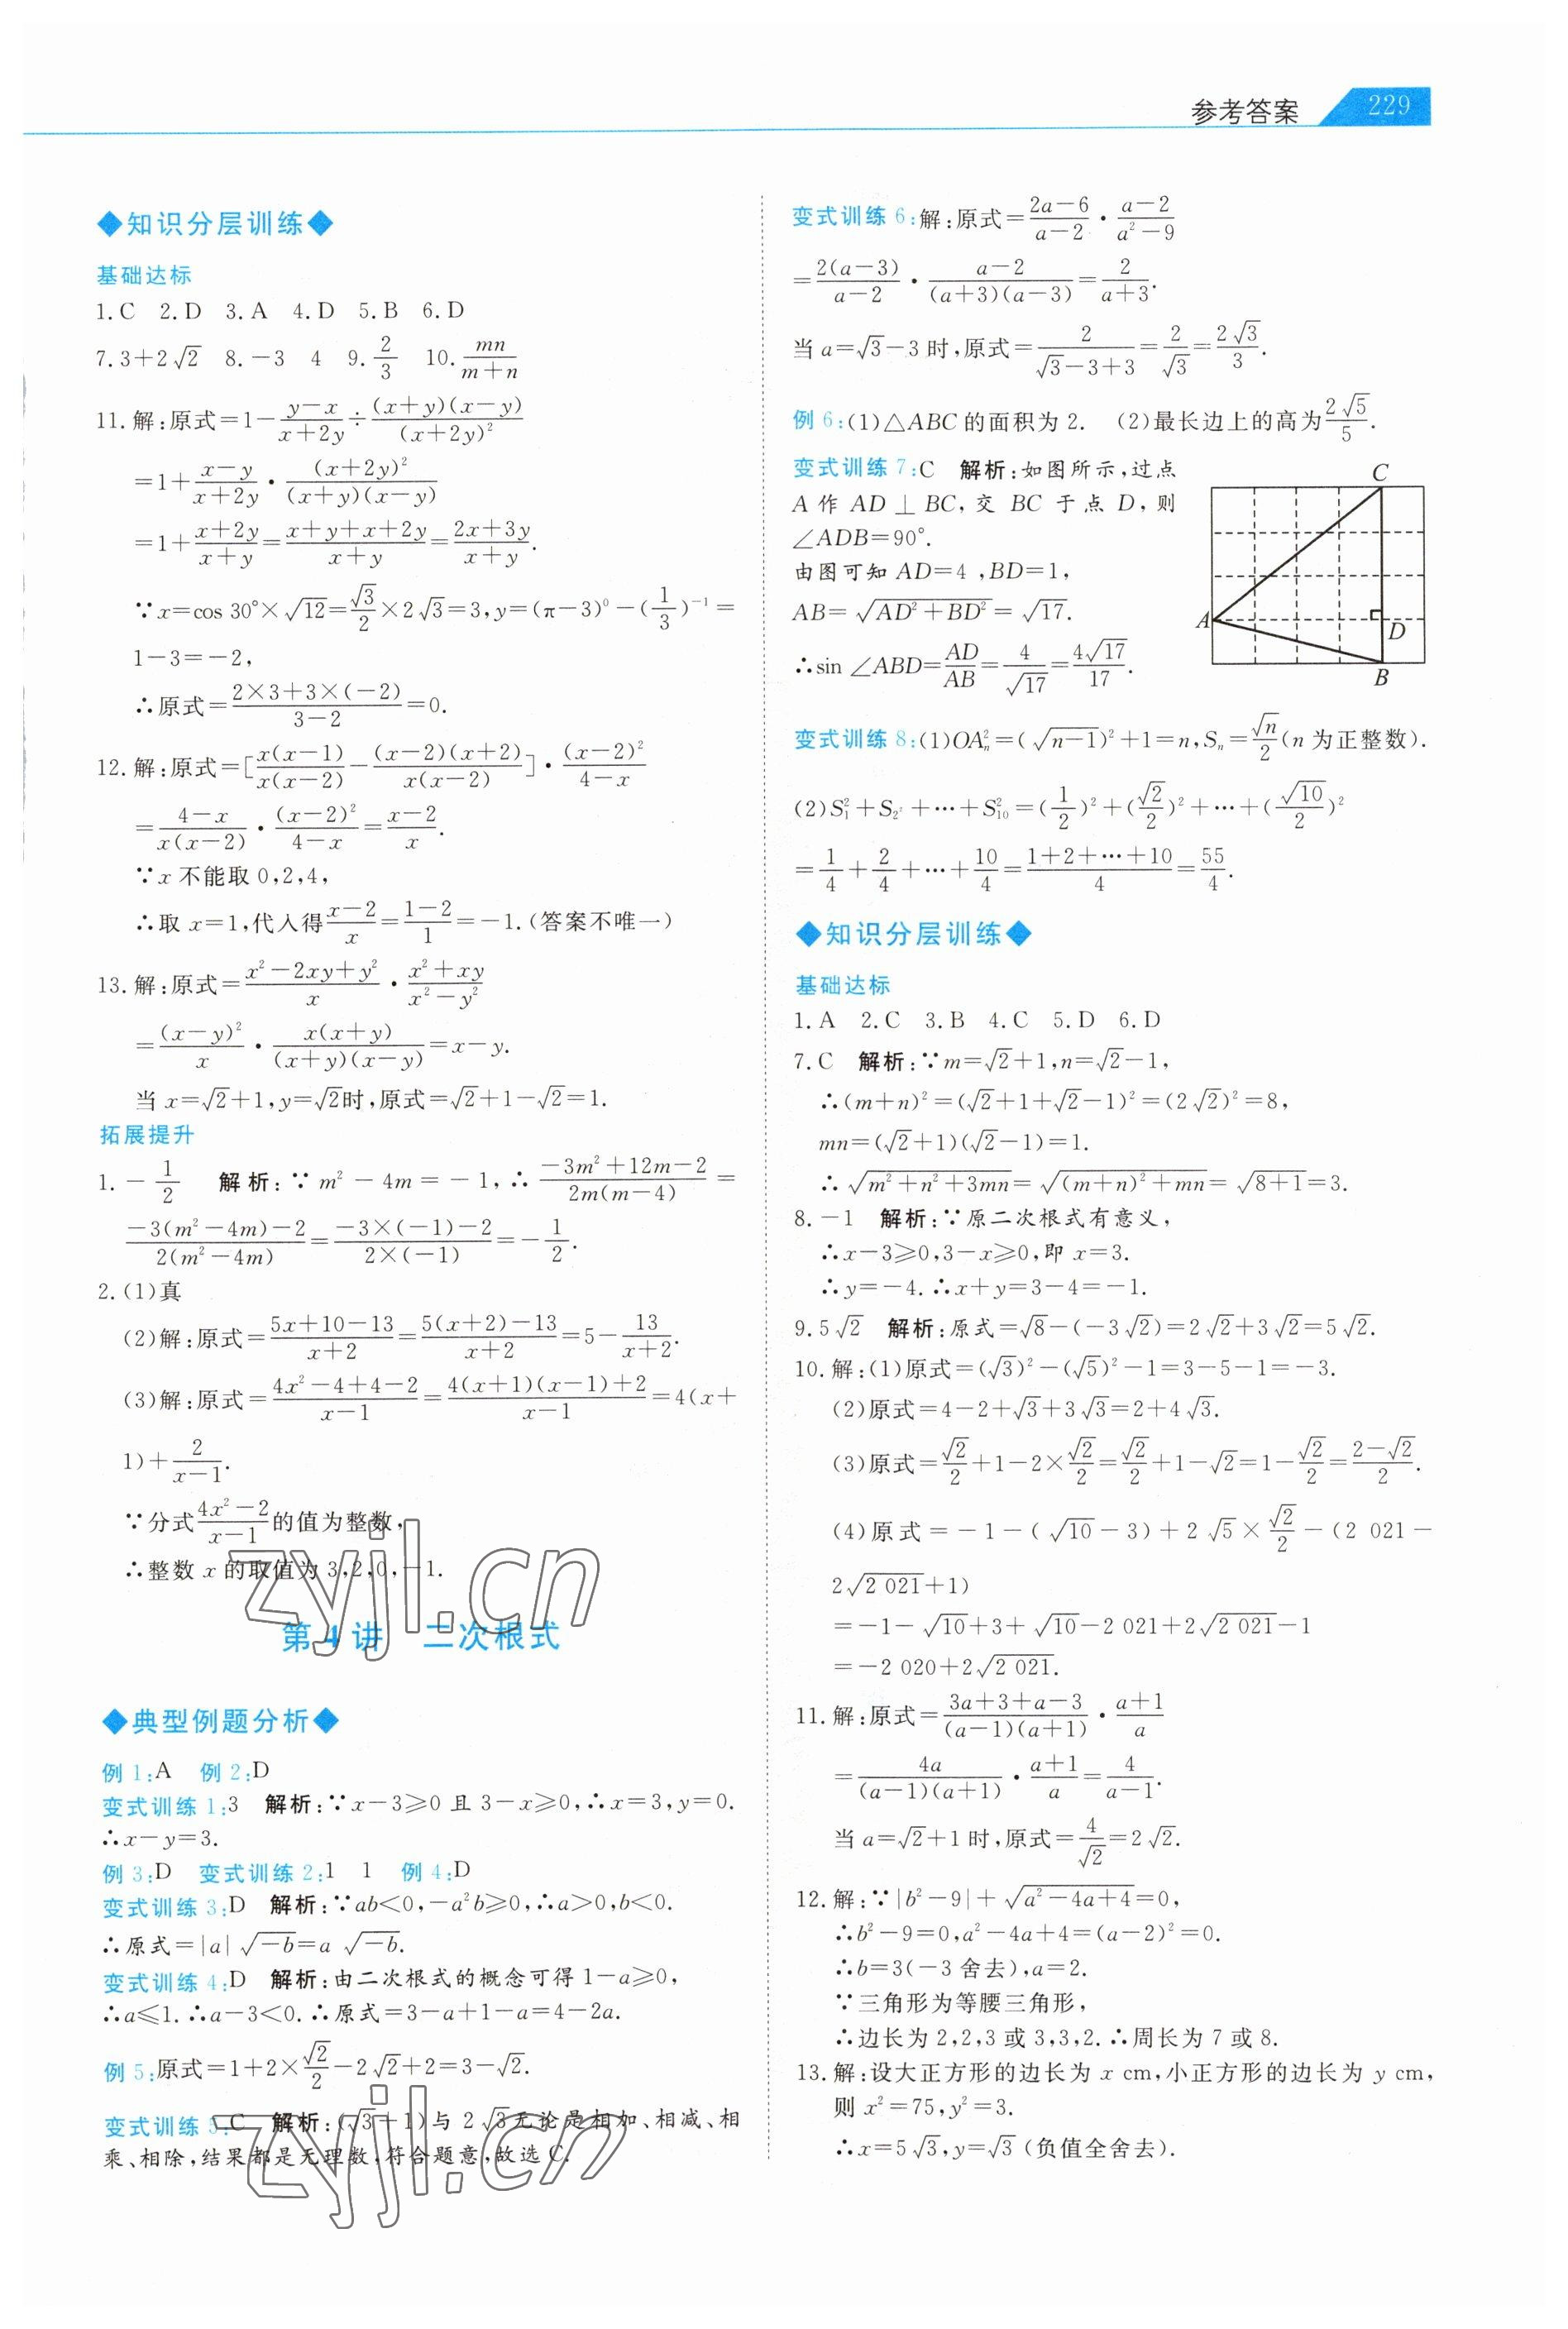 参考答案 229
◆知识分层训练◆
基础达标
1.C 2.D 3.A 4.D 5.B 6.D
7.3+2√2 8.-3 4 9.2/3 10.mn/(m+n)
11.解:原式=1-(y-x)/(x+2y)÷(x+y)(x-y)/(x+2y)²
=1+(x-y)/(x+2y)·(x+2y)²/((x+y)(x-y))
=1+(x+2y)/(x+y)=(x+y+x+2y)/(x+y)=(2x+3y)/(x+y).
∵x=cos 30°×√12=√3/2×2√3=3,y=(π-3)⁰-(1/3)⁻¹=
1-3=-2,
∴原式=(2×3+3×(-2))/(3-2)=0.
12.解:原式=[x(x-1)/(x(x-2))-(x-2)(x+2)/(x(x-2))]·(x-2)²/(4-x)
=(4-x)/(x(x-2))·(x-2)²/(4-x)=(x-2)/x.
∵x不能取0,2,4,
∴取x=1,代入得(x-2)/x=(1-2)/1=-1.(答案不唯一)
13.解:原式=(x²-2xy+y²)/x·(x²+xy)/(x²-y²)
=(x-y)²/x·x(x+y)/((x+y)(x-y))=x-y.
当x=√2+1,y=√2时,原式=√2+1-√2=1.
拓展提升
1.-1/2 解析:∵m²-4m=-1,∴(-3m²+12m-2)/(2m(m-4))=
(-3(m²-4m)-2)/(2(m²-4m))=(-3×(-1)-2)/(2×(-1))=-1/2.
2.(1)真
(2)解:原式=(5x+10-13)/(x+2)=(5(x+2)-13)/(x+2)=5-13/(x+2).
(3)解:原式=(4x²-4+4-2)/(x-1)=(4(x+1)(x-1)+2)/(x-1)=4(x+
1)+2/(x-1).
∵分式(4x²-2)/(x-1)的值为整数,
∴整数x的取值为3,2,0,-1.
zyjl.cn
第4讲 二次根式
◆典型例题分析◆
例1:A 例2:D
变式训练1:3 解析:∵x-3≥0且3-x≥0,∴x=3,y=0.
∴x-y=3.
例3:D 变式训练2:1 1 例4:D
变式训练3:D 解析:∵ab<0,-a²b≥0,∴a>0,b<0.
∴原式=|a|√(-b)=a√(-b).
变式训练4:D 解析:由二次根式的概念可得1-a≥0,
∴a≤1.∴a-3<0.∴原式=3-a+1-a=4-2a.
例5:原式=1+2×√2/2-2√2+2=3-√2.
变式训练5:C 解析:(√3+1)与2√3无论是相加、相减、相
乘、相除,结果都是无理数,符合题意,故选C.
zyjl.cn
变式训练6:解:原式=(2a-6)/(a-2)·(a-2)/(a²-9)
=2(a-3)/(a-2)·(a-2)/((a+3)(a-3))=2/(a+3).
当a=√3-3时,原式=2/(√3-3+3)=2/√3=2√3/3.
例6:(1)△ABC的面积为2. (2)最长边上的高为2√5/5.
变式训练7:C 解析:如图所示,过点
A作AD⊥BC,交BC于点D,则
∠ADB=90°.
由图可知AD=4,BD=1,
AB=√(AD²+BD²)=√17.
∴sin∠ABD=AD/AB=4/√17=4√17/17.
C
A
D
B
变式训练8:(1)OAₙ²=(√(n-1))²+1=n,Sₙ=√n/2(n为正整数).
(2)S₁²+S₂²+…+S₁₀²=(1/2)²+(√2/2)²+…+(√10/2)²
=1/4+2/4+…+10/4=(1+2+…+10)/4=55/4.
◆知识分层训练◆
基础达标
1.A 2.C 3.B 4.C 5.D 6.D
7.C 解析:∵m=√2+1,n=√2-1,
∴(m+n)²=(√2+1+√2-1)²=(2√2)²=8,
mn=(√2+1)(√2-1)=1.
∴√(m²+n²+3mn)=√((m+n)²+mn)=√(8+1)=3.
8.-1 解析:∵原二次根式有意义,
∴x-3≥0,3-x≥0,即x=3.
∴y=-4.∴x+y=3-4=-1.
9.5√2 解析:原式=√8-(-3√2)=2√2+3√2=5√2.
10.解:(1)原式=(√3)²-(√5)²-1=3-5-1=-3.
(2)原式=4-2+√3+3√3=2+4√3.
(3)原式=√2/2+1-2×√2/2=√2/2+1-√2=1-√2/2=(2-√2)/2.
(4)原式=-1-(√10-3)+2√5×√2/2-(2 021-
2√2 021+1)
=-1-√10+3+√10-2 021+2√2 021-1
=-2 020+2√2 021.
11.解:原式=(3a+3+a-3)/((a-1)(a+1))·(a+1)/a
=4a/((a-1)(a+1))·(a+1)/a=4/(a-1).
当a=√2+1时,原式=4/√2=2√2.
12.解:∵|b²-9|+√(a²-4a+4)=0,
∴b²-9=0,a²-4a+4=(a-2)²=0.
∴b=3(-3舍去),a=2.
∵三角形为等腰三角形,
∴边长为2,2,3或3,3,2.∴周长为7或8.
13.解:设大正方形的边长为x cm,小正方形的边长为y cm,
则x²=75,y²=3.
∴x=5√3,y=√3(负值全舍去).